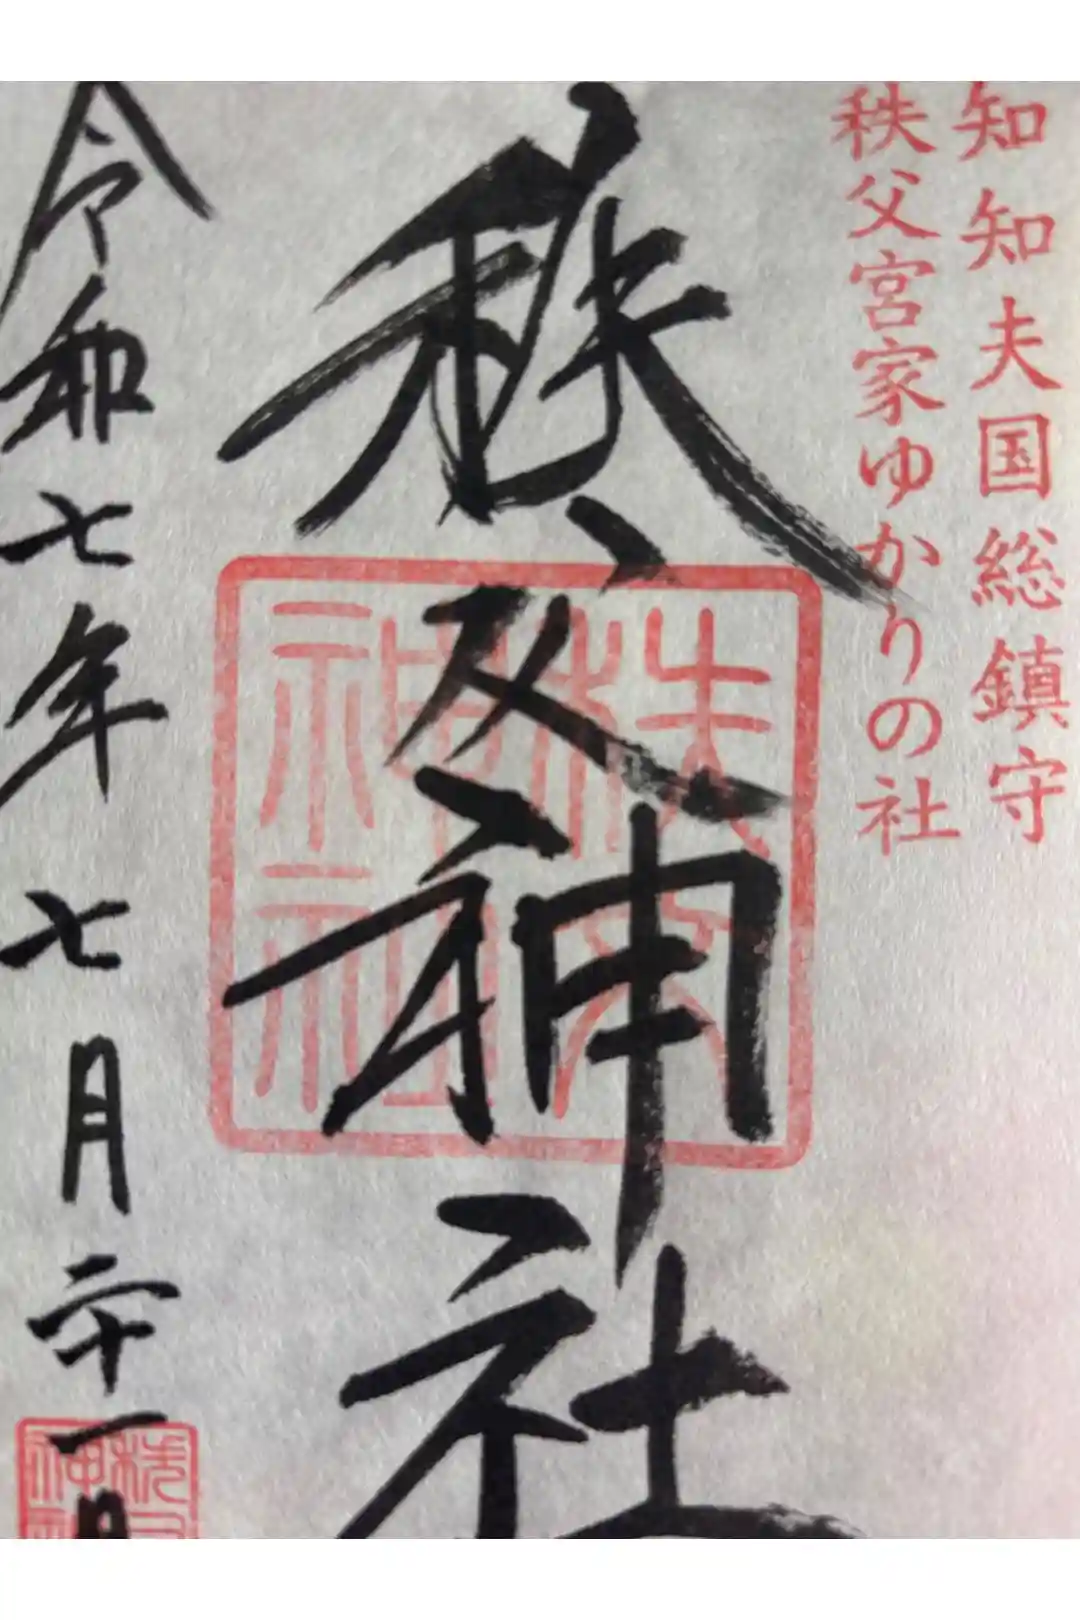 知知夫国総鎮守
秩父宮家ゆかりの社
秩父神社
秩父神社
令和七年七月二十一日